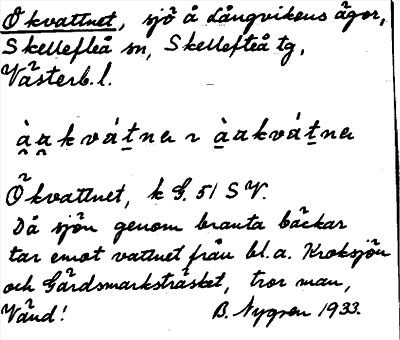 Ökvattnet, sjö å Långvikens ägor,
Skellefteå sn, Skellefteå tg,
Västerb. l.
àakvát̠na ~ àakvát̠na
Ökvattnet, k G. 51 SV.
Då sjön genom branta bäckar
tar emot vattnet från bl.a. Kroksjön
och Gärdsmarksträsket, tror man,
Vänd! B. Nygren 1933.